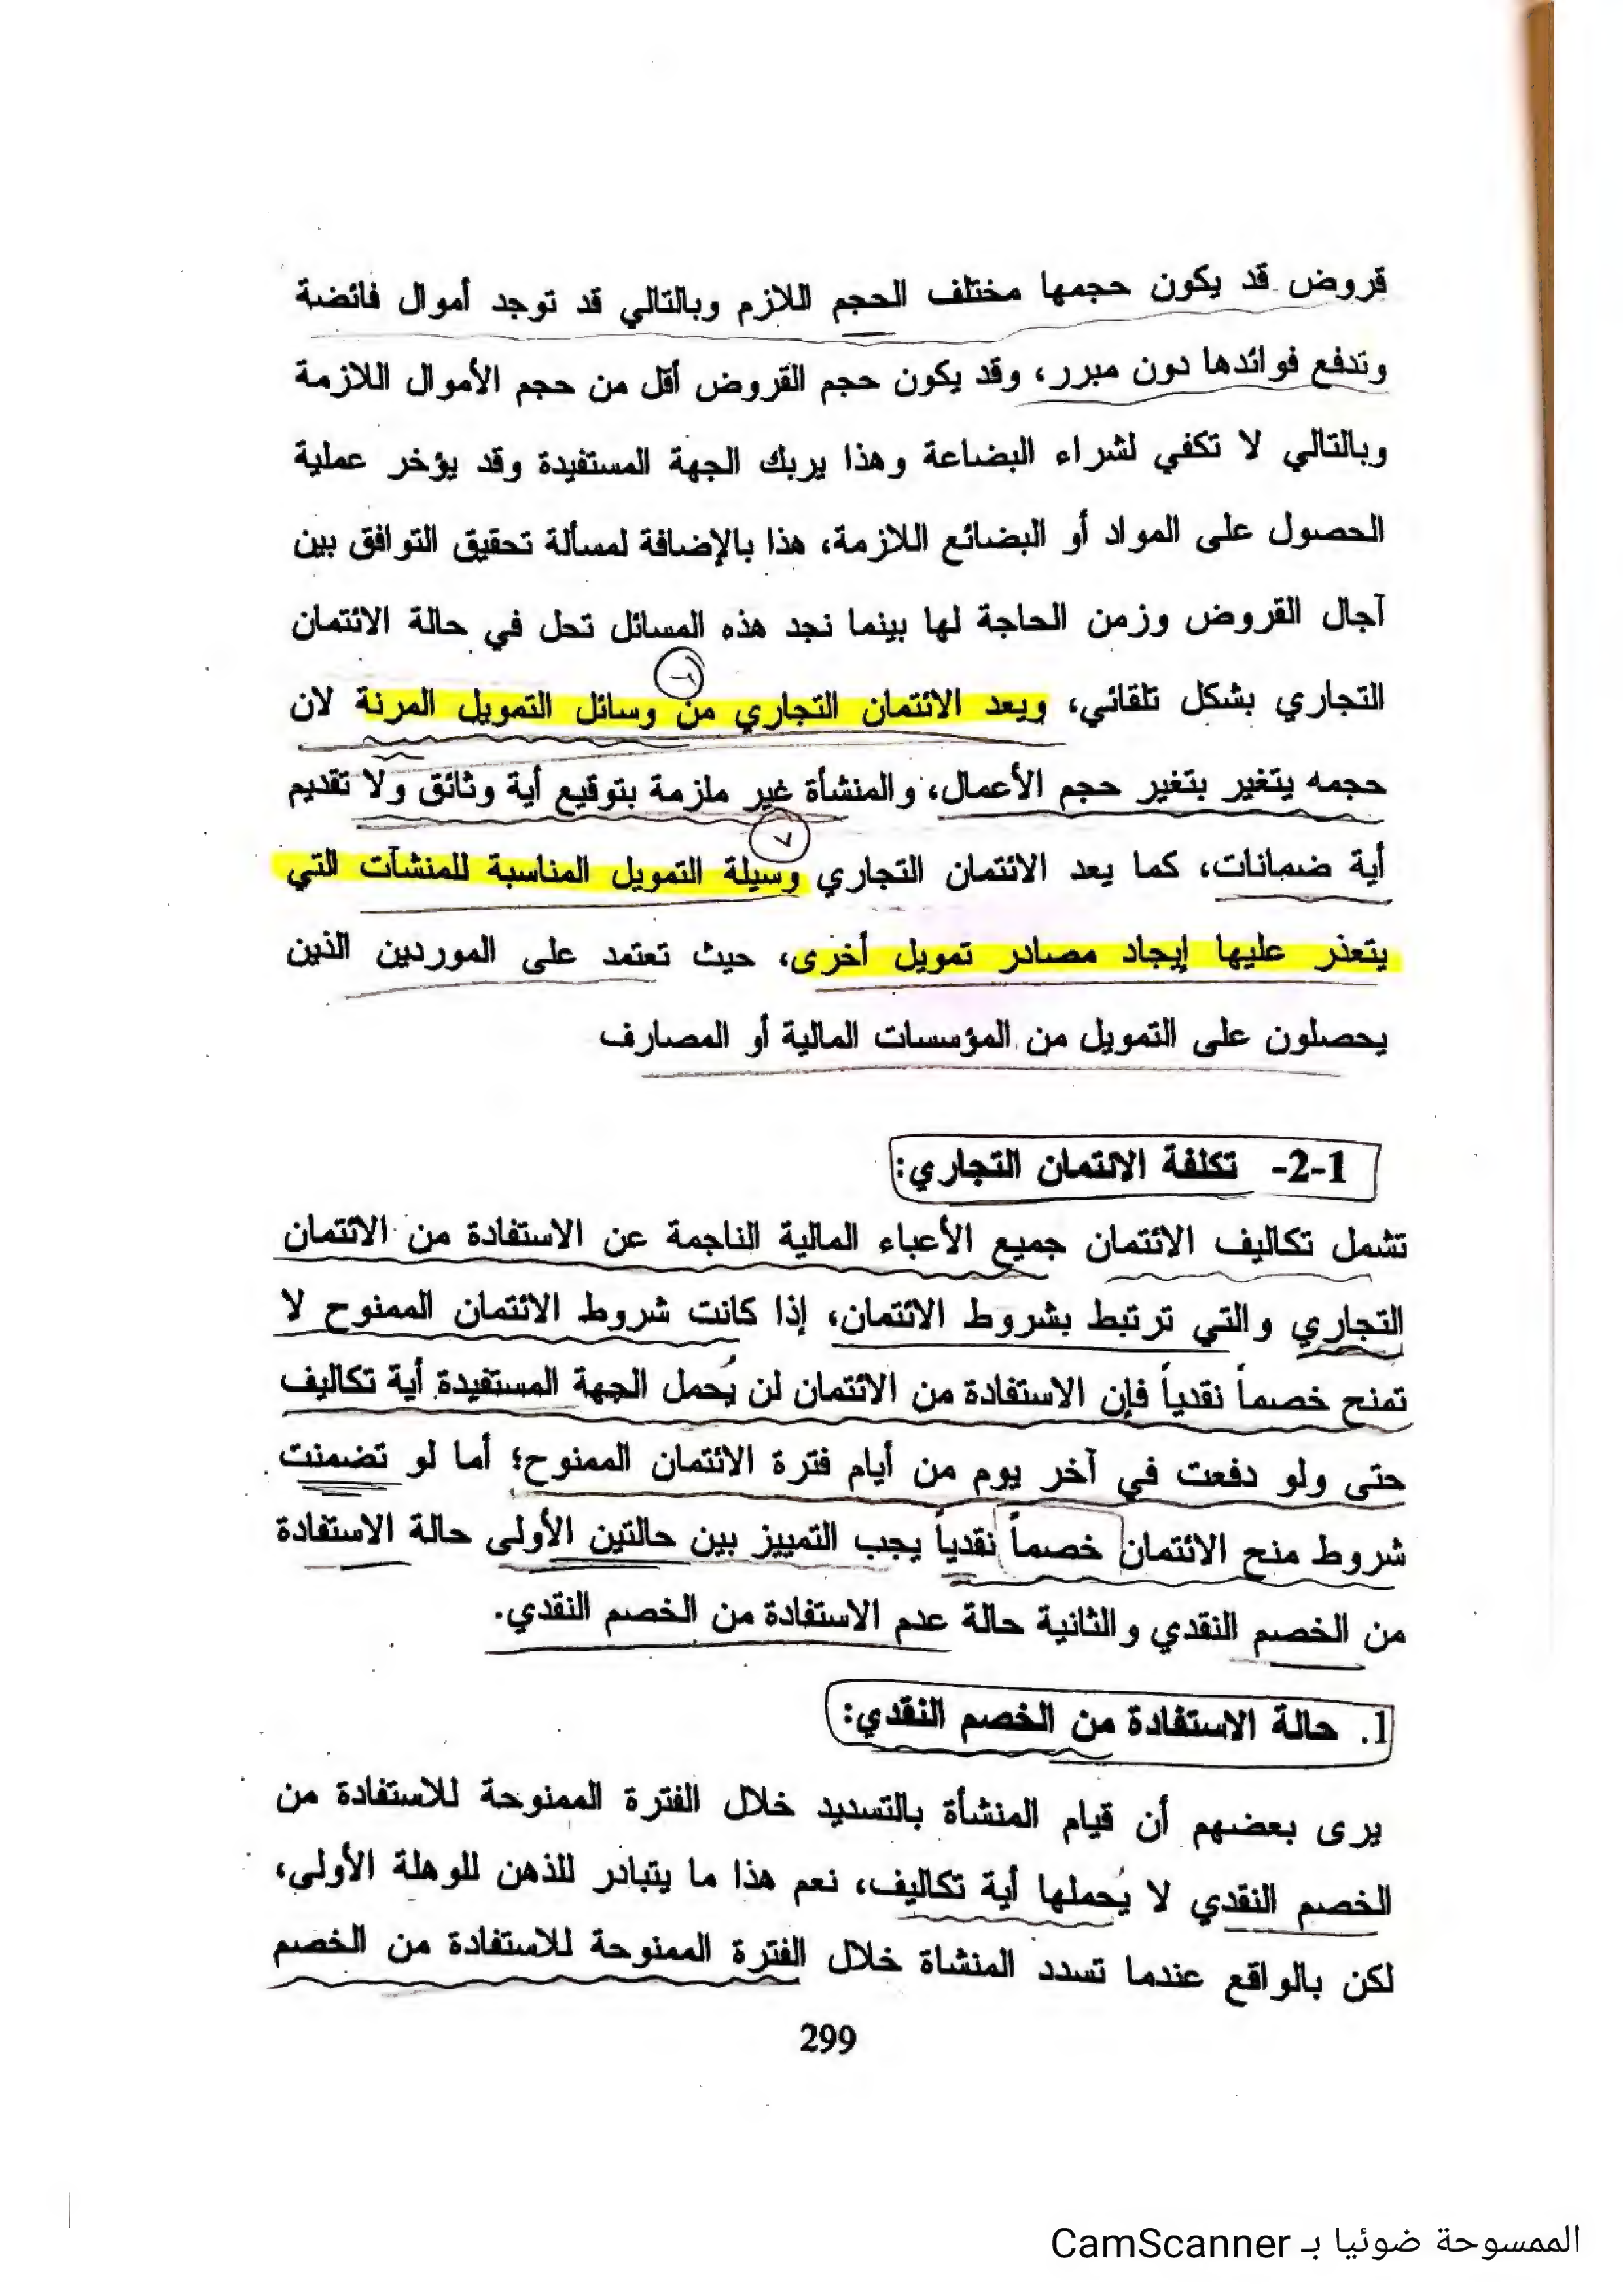 قروض قد يكون حجمها مختلف الحجم اللازم وبالتالي قد توجد أموال فائضة
وتدفع فوائدها دون مبرر، وقد يكون حجم القروض أقل من حجم الأموال اللازمة
وبالتالي لا تكفي لشراء البضاعة وهذا يربك الجهة المستفيدة وقد يؤخر عملية
الحصول على المواد أو البضائع اللازمة، هذا بالإضافة لمسألة تحقيق التوافق بين
آجال القروض وزمن الحاجة لها بينما نجد هذه المسائل تحل في حالة الائتمان
٦
التجاري بشكل تلقائي، ويعد الائتمان التجاري من وسائل التمويل المرنة لان
حجمه يتغير بتغير حجم الأعمال، والمنشأة غير ملزمة بتوقيع أية وثائق ولا تقديم
٧
أية ضمانات، كما يعد الائتمان التجاري وسيلة التمويل المناسبة للمنشآت التي
يتعذر عليها إيجاد مصادر تمويل أخرى، حيث تعتمد على الموردين الذين
يحصلون على التمويل من المؤسسات المالية أو المصارف
1-2- تكلفة الائتمان التجاري:
تشمل تكاليف الائتمان جميع الأعباء المالية الناجمة عن الاستفادة من الائتمان
التجاري والتي ترتبط بشروط الائتمان، إذا كانت شروط الائتمان الممنوح لا
تمنح خصماً نقدياً فإن الاستفادة من الائتمان لن يُحمل الجهة المستفيدة أية تكاليف
حتى ولو دفعت في آخر يوم من أيام فترة الائتمان الممنوح؛ أما لو تضمنت
شروط منح الائتمان خصماً نقدياً يجب التمييز بين حالتين الأولى حالة الاستفادة
من الخصم النقدي والثانية حالة عدم الاستفادة من الخصم النقدي.
1. حالة الاستفادة من الخصم النقدي:
يرى بعضهم أن قيام المنشأة بالتسديد خلال الفترة الممنوحة للاستفادة من
الخصم النقدي لا يُحملها أية تكاليف، نعم هذا ما يتبادر للذهن للوهلة الأولى،
لكن بالواقع عندما تسدد المنشاة خلال الفترة الممنوحة للاستفادة من الخصم
299
الممسوحة ضوئيا بـ CamScanner